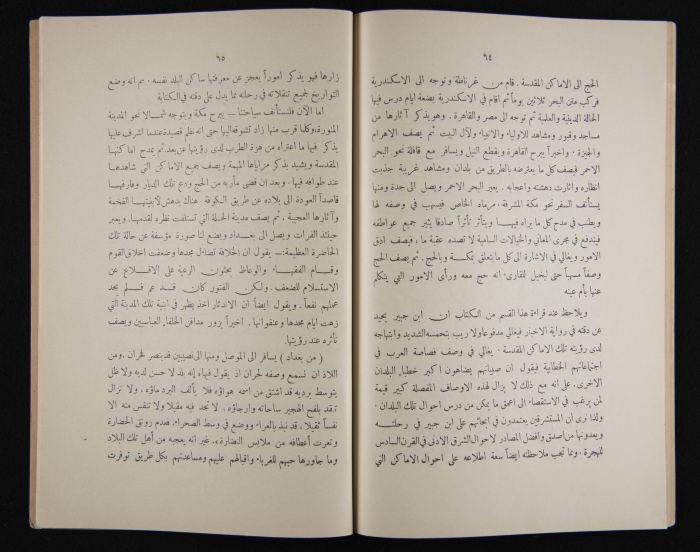 ٦٤
الحج الى الاماكن المقدسة . قام من غرناطة وتوجه الى الاسكندرية
فركب متن البحر ثلاثين يوماً ثم اقام في الاسكندرية بضعة ايام درس فيها
الحالة الدينية والعلمية ثم توجه الى مصر والقاهرة . وهو يذكر آثارها من
مساجد وقبور ومشاهد للاولياء والانبياء ولآل البيت ثم يصف الاهرام
والجيزة . واخيراً يبرح القاهرة ويقطع النيل ويسافر مع قافلة نحو البحر
الاحمر فيصف كل ما يعترضه بالطريق من بلدان ومشاهد غريبة جذبت
انظاره واثارت دهشته واعجابه . يعبر البحر الاحمر ويصل الى جدة ومنها
يستأنف السفر نحو مكة المشرفة . مرماه الخاص فيسهب في وصفه لها
ويطنب في مدح كل ما يراه فيها ويتأثر تأثراً صادقا يثير جميع عواطفه
فيندفع في مجرى المعاني والخيالات السامية لا تصده عقبة ما ، فيصف ادق
الامور ويغالي في الاشارة الى كل ما يتعلق بمكة وبالحج . ثم يصف الحج
وصفاً مسهباً حتى ليخيل للقارىء انه حج معه ورأى الامور التي يتكلم
عنها بأم عينه
ويلاحظ عند قراءة هذا القسم من الكتاب ان ابن جبير يحيد
عن دقته في رواية الاخبار فيغالي مدفوعا ولا ريب بتحمسه الشديد وابتهاجه
لدى رؤيته تلك الاماكن المقدسة . يغالي في وصف فصاحة العرب في
اجتماعاتهم الخطابية فيقول ان صبيانهم يضاهون اكبر خطباء البلدان
الاخرى . على انه مع ذلك لا يزال لهذه الاوصاف المفصلة كبير قيمة
لمن يرغب في الاستقصاء الى اعمق ما يمكن من درس احوال تلك البلدان .
ولذا نرى ان المستشرقين يعتمدون في ابحاثهم على ابن جبير في رحلته
ويعدونها من اصدق وافضل المصادر لاحوال الشرق الادنى في القرن السادس
للهجرة . ومما تجب ملاحظته ايضاً سعة اطلاعه على احوال الاماكن التي
٦٥
زارها فهو يذكر اموراً يعجز عن معرفتها ساكن البلد نفسه . ثم انه وضع
التواريخ لجميع تنقلاته في رحلته مما يدل على دقته في الكتابة
اما الآن فلنستأنف سياحتنا — يبرح مكة ويتوجه شمالا نحو المدينة
المنورة، وكلما قرب منها زاد تشوقه اليها حتى انه نظم قصيدة عندما اشرف عليها
يذكر فيها ما اعتراه من هزة الطرب لدى رؤيتها عن بعد. ثم يمدح اماكنها
المقدسة ويشيد بذكر مزاياها المهمة ويصف جميع الاماكن التي شاهدها
عند طوافه فيها . وبعد ان قضى مأربه من الحج ودع تلك الديار وفارقها
قاصداً العودة الى بلاده عن طريق الكوفة . هناك يدهش لابنيتها الفخمة
وآثارها العجيبة ، ثم يصف مدينة الحلة التي تستلفت نظره لقدمها . ويعبر
حينئذ الفرات ويصل الى بغداد ويضع لنا صورة مؤسفة عن حالة تلك
الحاضرة العظيمة: — يقول ان الخلافة تضاءل مجدها وضعفت اخلاق القوم
وقام الفقهاء والوعاظ يحثون الرعية على الاقلاع عن
الاستسلام للضعف . ولكن الفتور كان قد عم فلم يجد
عملهم نفعاً . ويقول ايضاً ان الاندثار اخذ يظهر في ابنية تلك المدينة التي
زهت ايام مجدها وعنفوانها . اخيراً يزور مدافن الخلفاء العباسيين ويصف
تأثره عند رؤيتها .
( من بغداد ) يسافر الى الموصل ومنها الى نصيبين فدنيصر فحران . ومن
اللاذ ان نسمع وصفه لحران اذ يقول فيها « انه بلد لا حسن لديه ولا ظل
يتوسط برديه قد اشتق من اسمه هواؤه فلا يألف البرد ماؤه ، ولا تزال
تتقد بلفح الهجير ساحاته وارجاؤه ، لا تجد فيه مقيلا ولا تتنفس منه الا
نفساً ثقيلا ، قد نبذ بالعراء ووضع في وسط الصحراء . فعدم رونق الحضارة
وتعرت أعطافه من ملابس النضارة » . غير انه يعجبه من أهل تلك البلاد
وما جاورها حبهم للغرباء واقبالهم عليهم ومساعدتهم بكل طريق توفرت